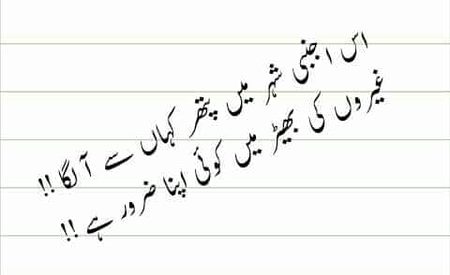 اس اجنبی شہر میں پتھر کہاں سے آ لگا !!
غیروں کی بھیڑ میں کوئی اپنا ضرور ہے !!